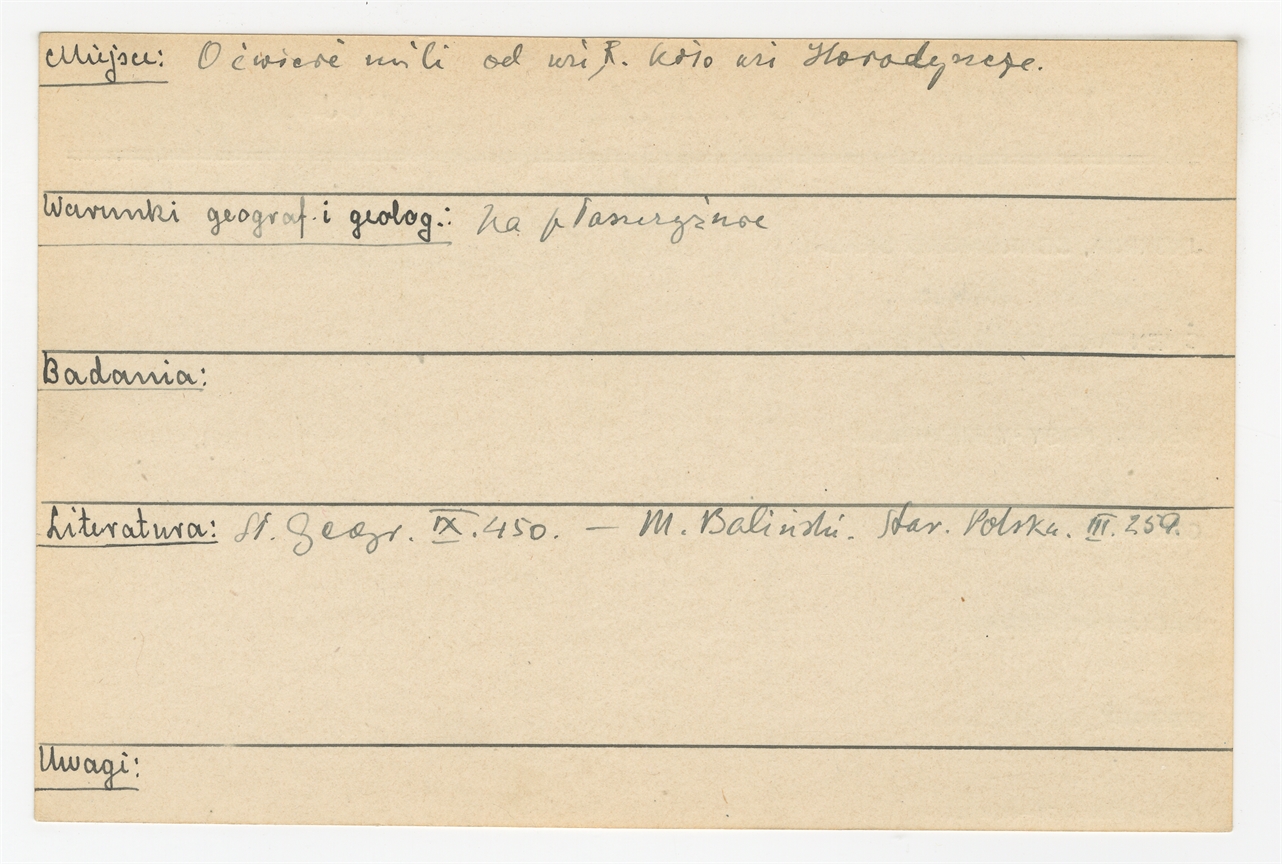 Miejsce: O ćwierć mili od wsi R. koło wsi Horodyszcze.
Warunki geograf. i geolog.: Na płaszczyźnie
Badania:
Literatura: Sł. Geogr. IX. 450. — M. Baliński. Star. Polska. III. 259.
Uwagi: